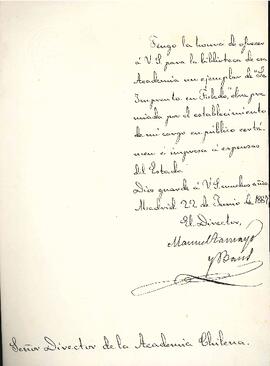 Tengo la honra de ofrecer
á V.S. para la biblioteca de esa
Academia un ejemplar de "La
Imprenta en Toledo", obra pre-
miada por el establecimiento
de mi cargo en público certá-
men é impresa á expensas
del Estado.
Dios guarde á V.S. muchos años.
Madrid 22 de Junio de 1887
El Director,
Manuel Tamayo
y Baus
Señor Director de la Academia Chilena.